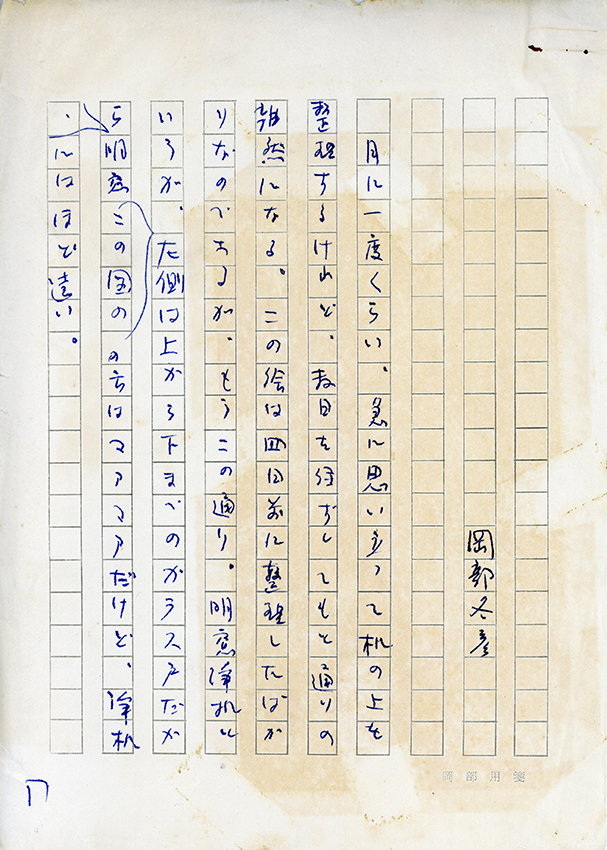 岡部冬彦
月に一度くらい、急に思い立って机の上を
整理するけれど、数日を経ずしてもと通りの
雑然になる。この絵は四日前に整理したばか
りなのであるが、もうこの通り。明窓浄机と
いうが、左側は上から下までのガラス戸だか
ら明窓この図のの方はマアマアだけど、浄机
、にはほど遠い。
岡部用箋